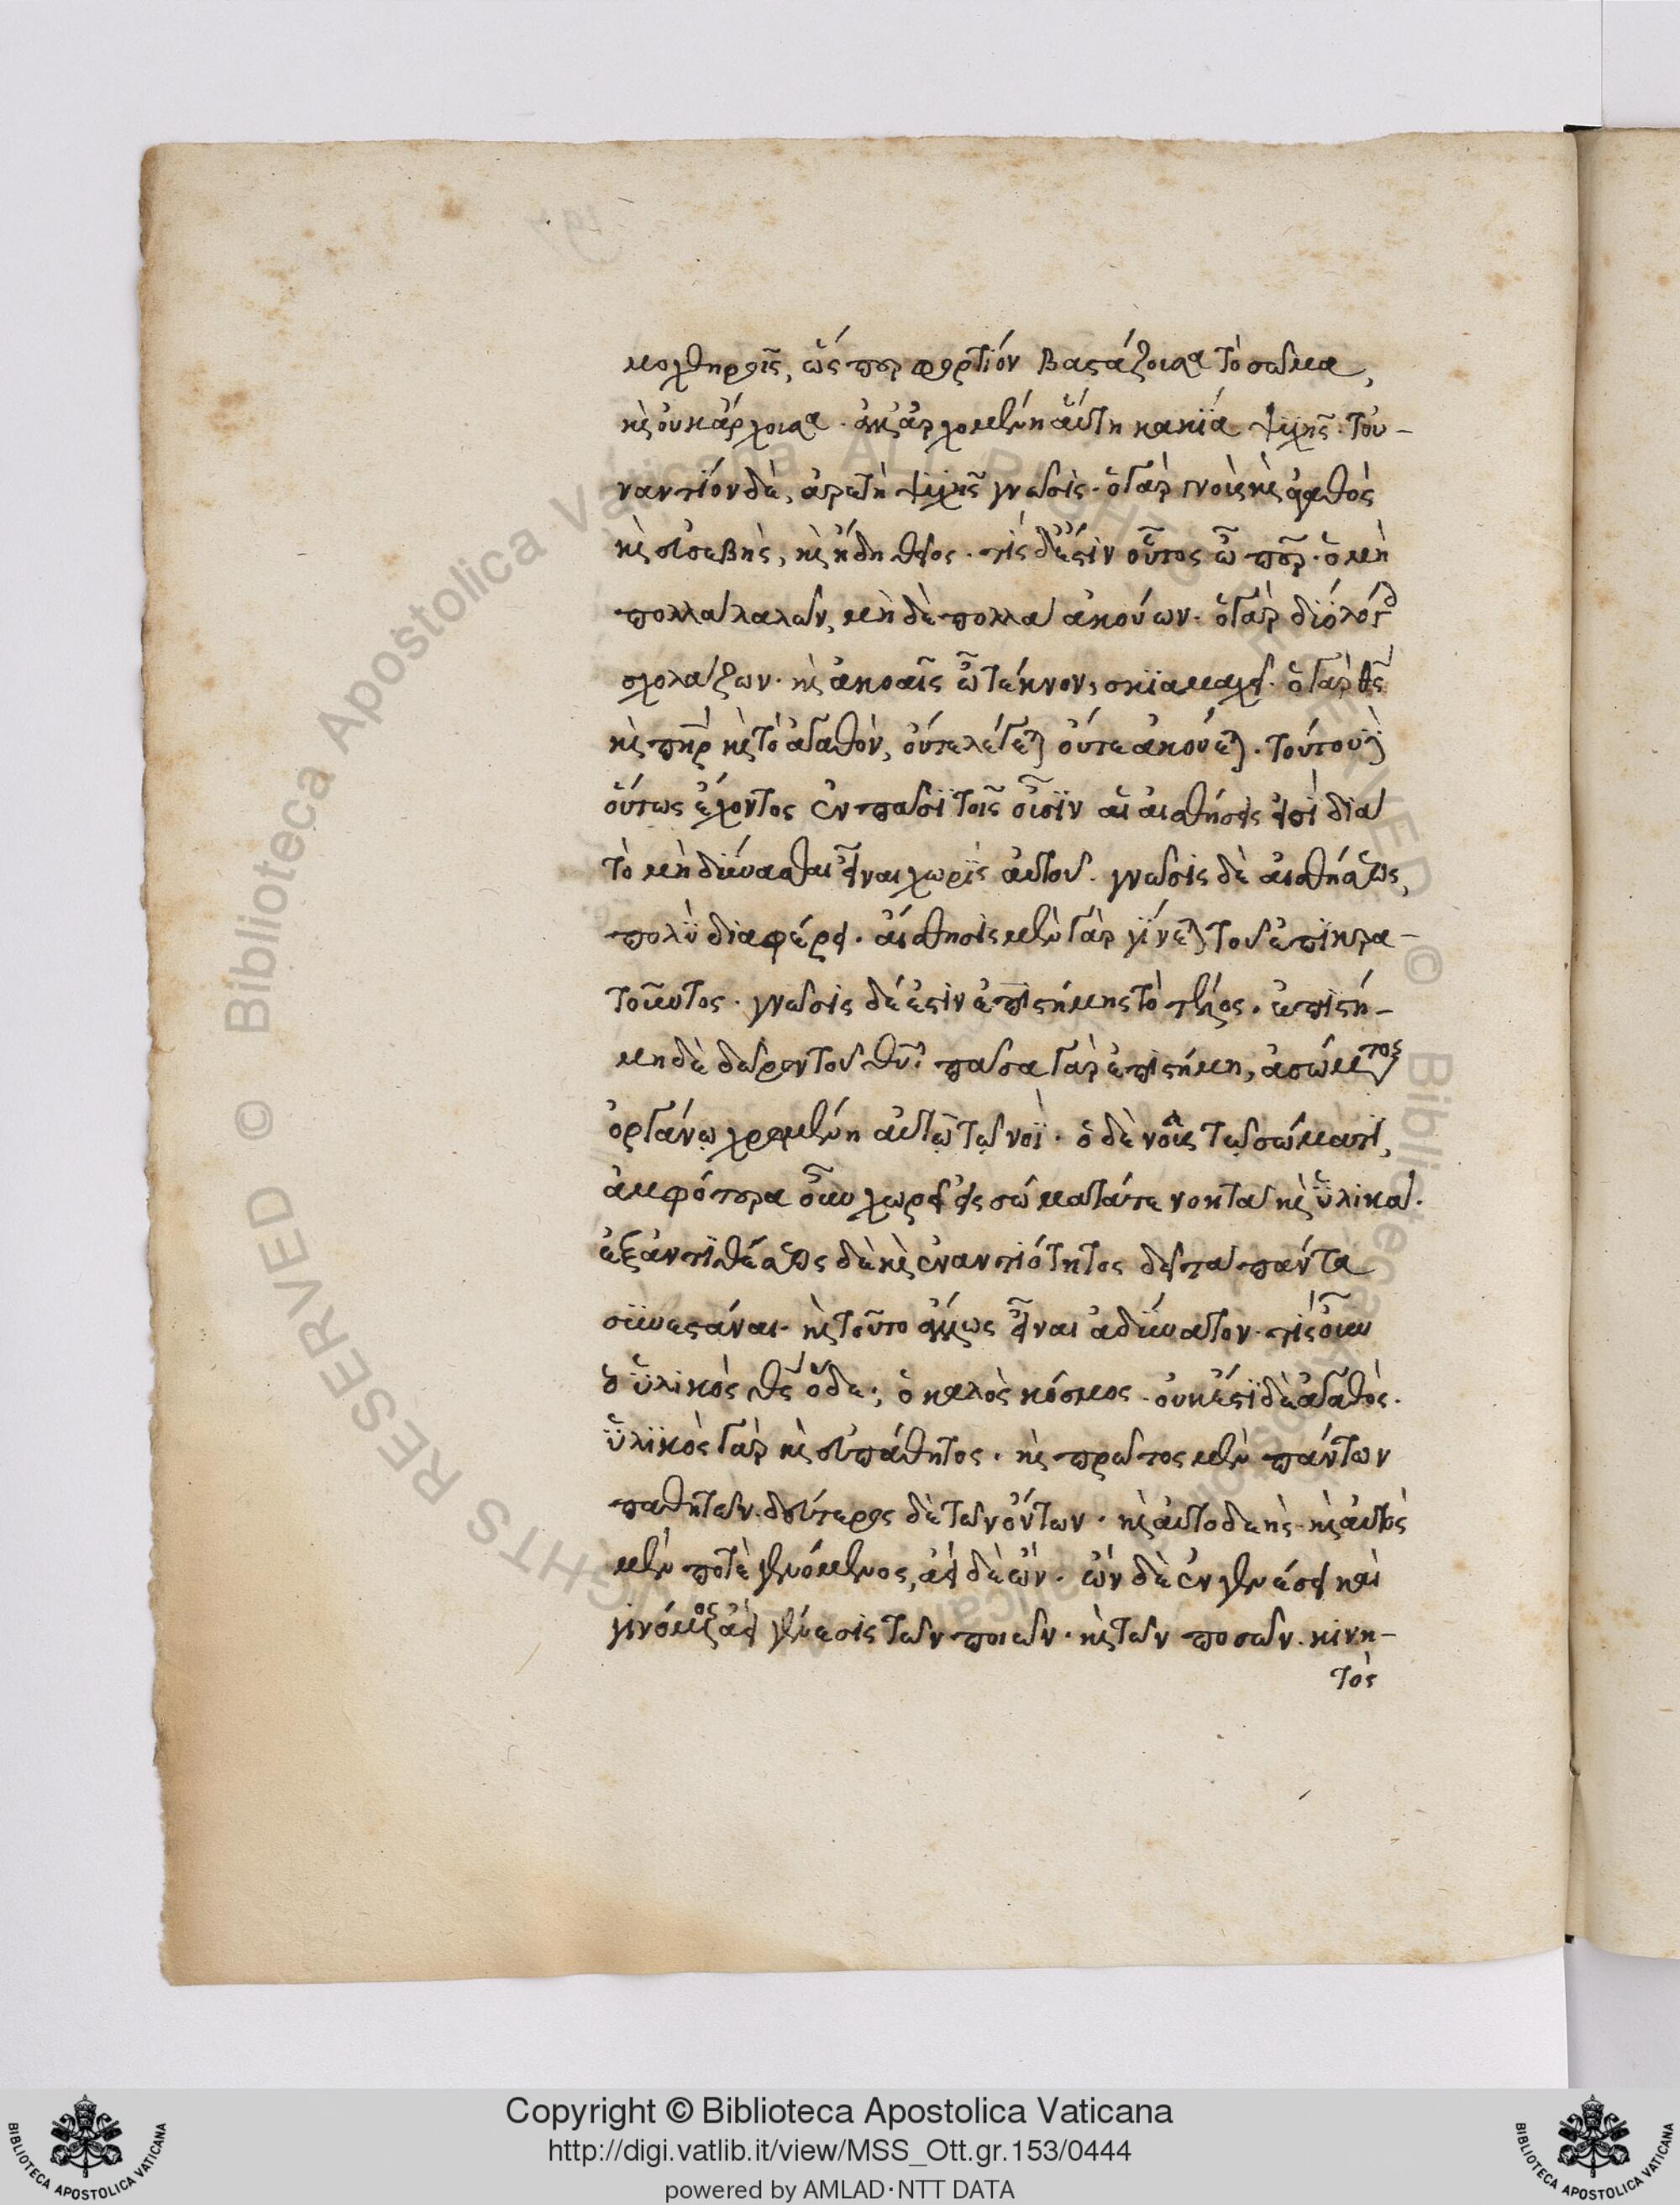 μοχθηροῖς, ὥσπερ φορτίον βαστάζουσα τὸ σῶμα,
καὶ οὐκ ἄρχουσα. ἀλλ' ἀρχομένη αὕτη κακία ψυχῆς. τοὐ-
ναντίον δὲ, ἀρετὴ ψυχῆς γνῶσις. ὁ γὰρ γνοὺς καὶ ἀγαθὸς
καὶ εὐσεβὴς, καὶ ἤδη θεῖος. τίς δέ ἐστιν οὗτος ὦ πάτερ. ὁ μὴ
πολλὰ λαλῶν, μὴ δὲ πολλὰ ἀκούων. ὁ γὰρ δὶ ὁ λόγ
σχολάζων. καὶ ἀκοαῖς ὦ τέκνον, σκιαμαχεῖ. ὁ γὰρ θς
καὶ πηρ καὶ τὸ ἀγαθὸν, οὔτε λέγεται οὔτε ἀκούεται. τούτου δὲ
οὕτως ἔχοντος ἐν πᾶσι τοῖς οὖσιν αἱ αἰσθήσεις εἰσὶ διὰ
τὸ μὴ δύνασθαι εἶναι χωρὶς αὐτοῦ. γνῶσις δὲ αἰσθήσεως,
πολὺ διαφέρει. αἴσθησις μὲν γὰρ γίνεται τοῦ ἐπικρα-
τοῦντος. γνῶσις δέ ἐστιν ἐπιστήμης τὸ τέλος. ἐπιστή-
μη δὲ δῶρον τοῦ θυ. πᾶσα γὰρ ἐπιστήμη, ἀσώματος
ὀργάνῳ χρωμένη αὐτῷ τῷ νοῒ. ὁ δὲ νοῦς τῷ σώματι,
ἀμφότερα οὖν χωρεῖ εἰς σώματά τε νοητὰ καὶ ὑλικά.
ἐξ ἀντιθέσεως δὲ καὶ ἐναντιότητος δεῖ τὰ πάντα
συνεστάναι. καὶ τοῦτο ἄλλως εἶναι ἀδύνατον. τίς οὖν
ὁ ὑλικὸς θς ὅδε; ὁ καλὸς κόσμος. οὐκ ἔστι δὲ ἀγαθὸς.
ὑλικὸς γὰρ καὶ εὐπάθητος. καὶ πρῶτος μὲν πάντων
παθητῶν. δεύτερος δὲ τῶν ὄντων. καὶ αὐτοδεὴς. καὶ αὐτὸς
μὲν ποτὲ γενόμενος, ἀεὶ δὲ ὤν. ὢν δὲ ἐν γενέσει καὶ
γινόμενος ἀεὶ γένεσις τῶν ποιῶν. καὶ τῶν ποσῶν. κινη-
τὸς
Copyright © Biblioteca Apostolica Vaticana
http://digi.vatlib.it/view/MSS_Ott.gr.153/0444
powered by AMLAD·NTT DATA